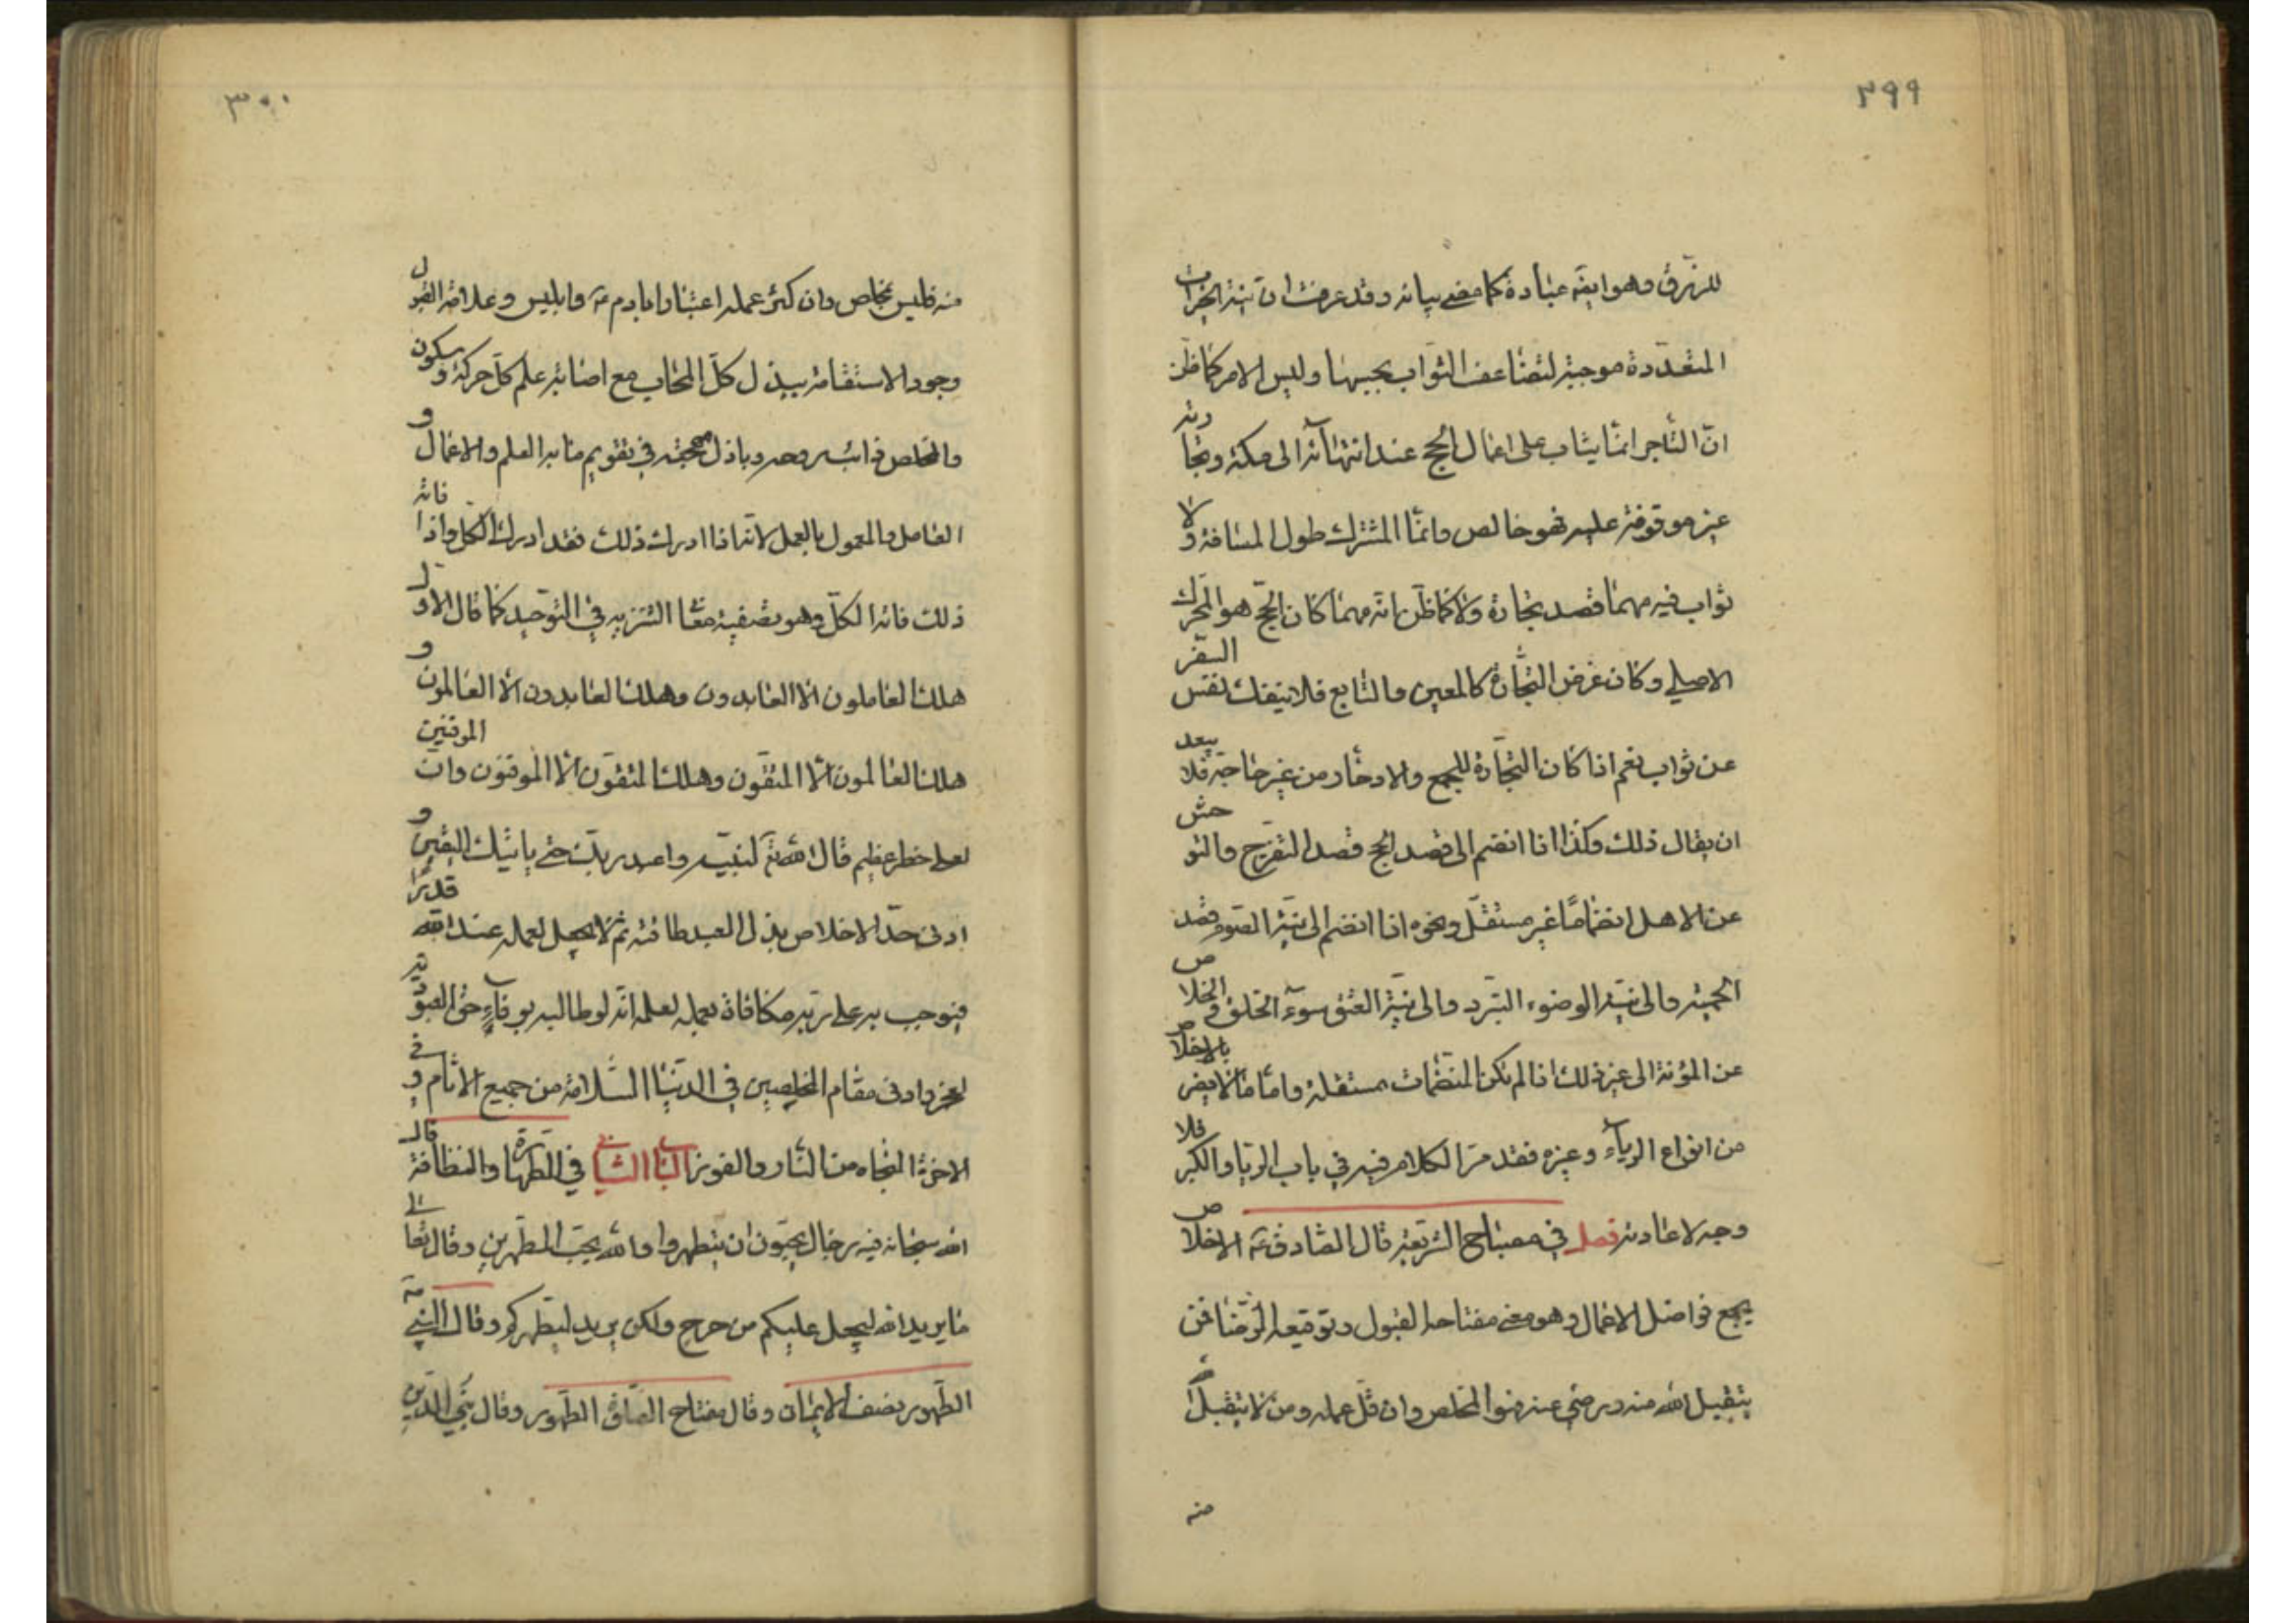 ٢٩٩
للتزرق وهو ايضَ عبادة كما مضى بيانه وقد عرفت ان نية الخيرات
المتعددة موجبة لتضاعف الثواب بحسبها وليس الامر كما ظن
ان التاجر انما يثاب على اعمال الحج عند انتهائه الى مكة وتجارته
غير موقوفة عليه فهو خالص وانما المشترك طول المسافة ولا
ثواب فيه مهما قصد تجارة ولا كما ظن انه مهما كان الحج هو المحرك
الاصلي وكان غرض التجارة كالمعين والتابع فلا ينفك نفس السفر
عن ثواب نعم اذا كان التجارة للجمع والادخار من غير حاجة فلا يبعد
ان يقال ذلك وكذا اذا انضم الى قصد الحج قصد التفرج والتوحش
عن الاهل انضماما غير مستقل ونحوه اذا انضم الى نية الصوم قصد
الحمية والى نية الوضوء التبرد والى نية العتق سوء الخلق والخلاص
عن المؤنة الى غير ذلك اذا لم تكن المنضمات مستقلة واما ما لا يضر بالاخلاص
من انواع الرياء وغيره فقد مر الكلام فيه في باب الريا والكبر فلا
وجه لاعادته فصل في مصباح الشريعة قال الصادق عَ الاخلاص
يجمع فواضل الاعمال وهو معنى مفتاحه القبول وتوقيعه الرضا فمن
يتقبل الله منه ويرضى عنه فهو المخلص وان قل عمله ومن لا يتقبل الله
منه
٣٠٠
منه فليس بمخلص وان كثر عمله اعتبارا بادم عَ وابليس وعلامة القبول
وجود الاستقامة ببذل كل المحاب مع اصابة علم كل حركة وسكون
والمخلص ذائب روحه وباذل مهجته في تقويم ما به العلم والاعمال و
العامل والمعمول بالعمل لانه اذا ادرك ذلك فقد ادرك الكل واذا فاته
ذلك فاته الكل وهو تصفية معنا التنزيه في التوحيد كما قال الاول
هلك العاملون الا العابدون وهلك العابدون الا العالمون و
هلك العالمون الا المتقون وهلك المتقون الا الموقنون وان الموقنين
لعلى خطر عظيم قال الله تَع لنبيه واعبد ربك حتى ياتيك اليقين و
ادنى حد الاخلاص بذل العبد طاقته ثم لا يجعل لعمله عند الله قدرا
فيوجب به على ربه مكافاة بعمله لعلمه انه لو طالبه بوفاء حق العبودية
لعجز وادنى مقام المخلصين في الدنيا السلامة من جميع الاثام وفي
الاخرة النجاه من النار والفوز الباب الثاني في الطهارة والنظافة قال
الله سبحانه فيه رجال يحبون ان يتطهروا والله يحب المطهرين وقال تعالى
ما يريد الله ليجعل عليكم من حرج ولكن يريد ليطهركم وقال النبي صَ
الطهور نصف الايمان وقال مفتاح الصلوة الطهور وقال بني الدين